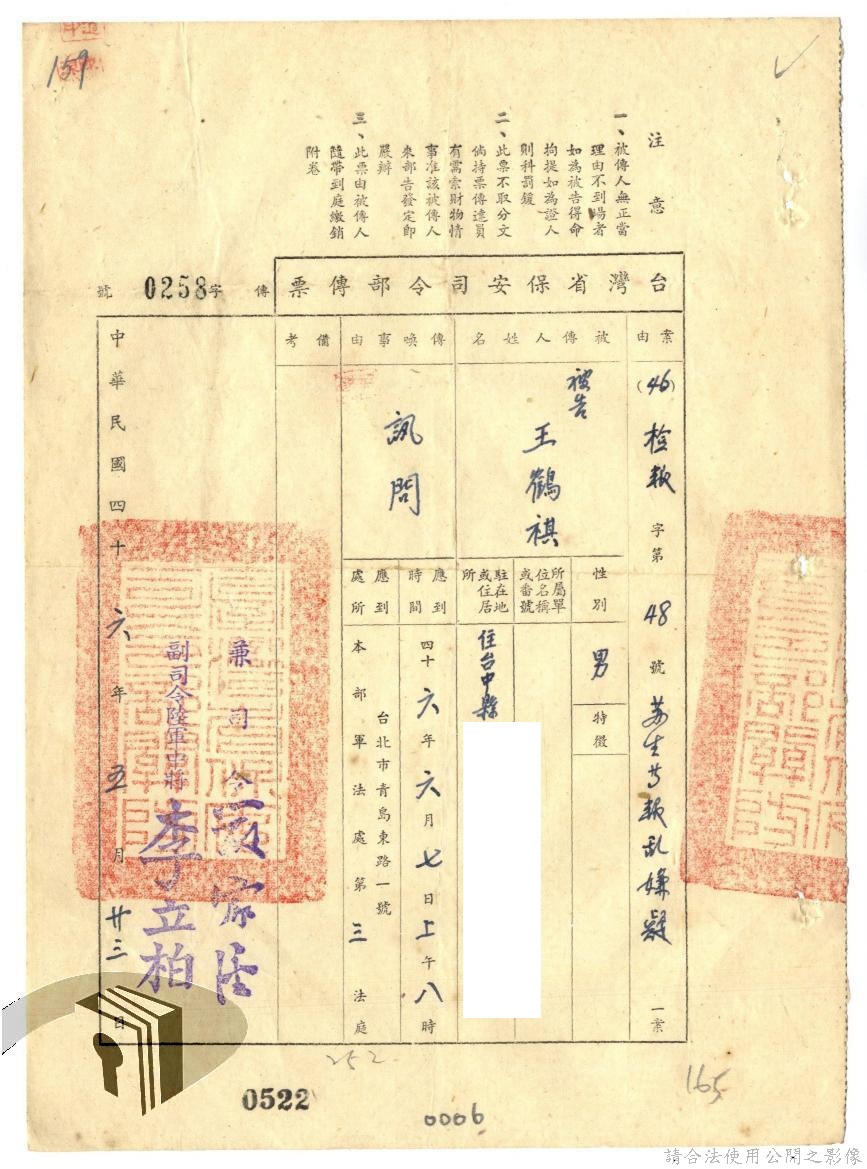 159
注意
一、被傳人無正當
理由不到場者
如為被告得命
拘提如為證人
則科罰鍰
二、此票不取分文
倘持票傳達員
有需索財物情
事准該被傳人
來部告發定即
嚴辦
三、此票由被傳人
隨帶到庭繳銷
附卷
台灣省保安司令部傳票
傳字0258號
案由
(46)檢報字第48號
叛乱嫌疑一案
被傳人姓名
被告
王鶴祺
性別
男
特徵
所屬單
位名稱
或番號
駐在地
或住居
所
住台中縣
傳喚事由
訊問
應到
時間
四十六年六月七日上午八時
應到
處所
台北市青島東路一號
本部軍法處第三法庭
備考
兼司令
副司令陸軍中將
李立柏
中華民國四十六年五月廿三日
252
0522
0006
165
請合法使用公開之影像